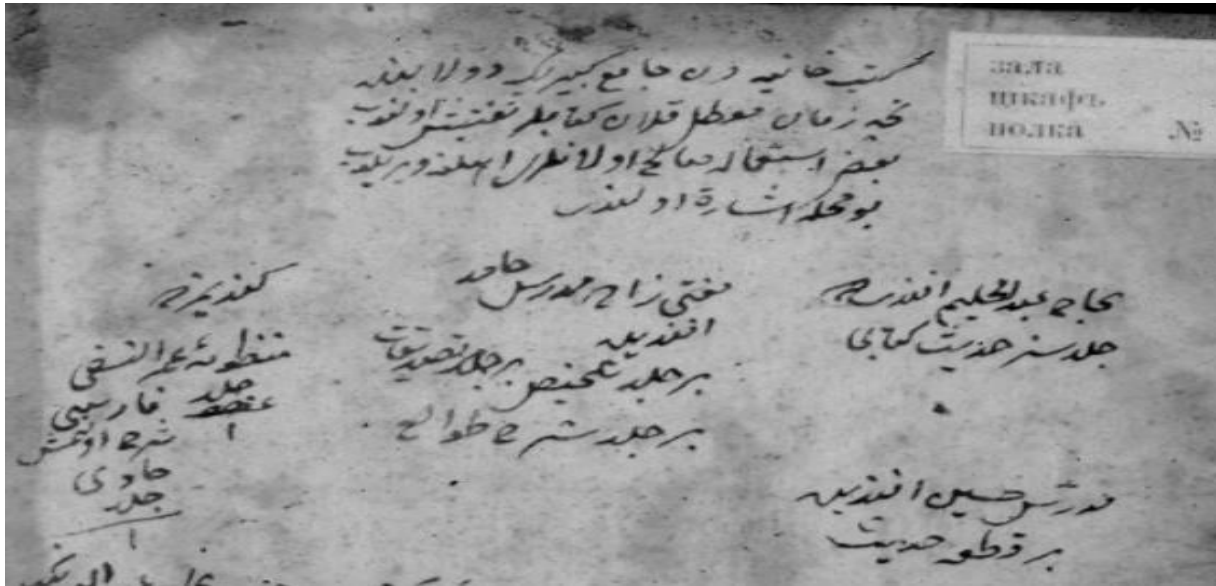 зала
шкафъ
полка №
كتبخانيه دن جامع كبيرك دولابنده
نچه زمان معطل قلان كتابلر تفتيش اولنوب
بعض استعماله صالح اولانلرى اهلنه ويريلوب
بو محله اشارة اولندى
الحاج عبدالحليم افندى يه
جلد سنر حديث كتابى
مفتى زاده مدرس حامد
افنديه
بر جلد تلخيص بر جلد تصديقات
بر جلد شرح طوالع
كنديمزه
منظومۀ عمر النسفى
جلد فارسيى
١ شرح اولنمش
حاوى
جلد
١
مدرس حسين افنديه
بر قطعه حديث